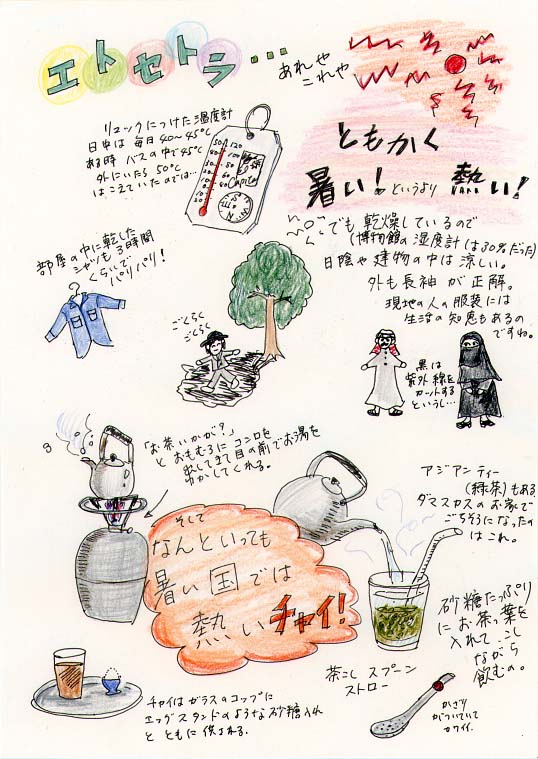 エトセトラ…
あれや
これや
リュックにつけた温度計
日中は毎日40〜45℃
ある時 バスの中で45℃
外にいたら 50℃
はこえていたのでは…
ともかく
暑い!というより 熱い!
でも 乾燥しているので
(博物館の湿度計は30%だった)
日陰や建物の中は涼しい。
外も長袖が正解。
現地の人の服装には
生活の知恵もあるの
ですね。
部屋の中に乾した
シャツも3時間
くらいで
パリパリ!
ごくらく
ごくらく
黒は
紫外線を
カットする
というし…
「お茶いかが?」
と おもむろに コンロを
出してきて目の前でお湯を
わかしてくれる。
そして
なんといっても
暑い国では
熱いチャイ!
アジアンティー
(緑茶)もある
ダマスカスのお家で
ごちそうになったの
はこれ。
砂糖たっぷり
にお茶っ葉を
入れて、こし
ながら
飲むの。
茶こし スプーン
ストロー
かざり
がついていて
カワイイ.
チャイはガラスのコップに
エッグスタンドのような砂糖入れ
と ともに 供される。